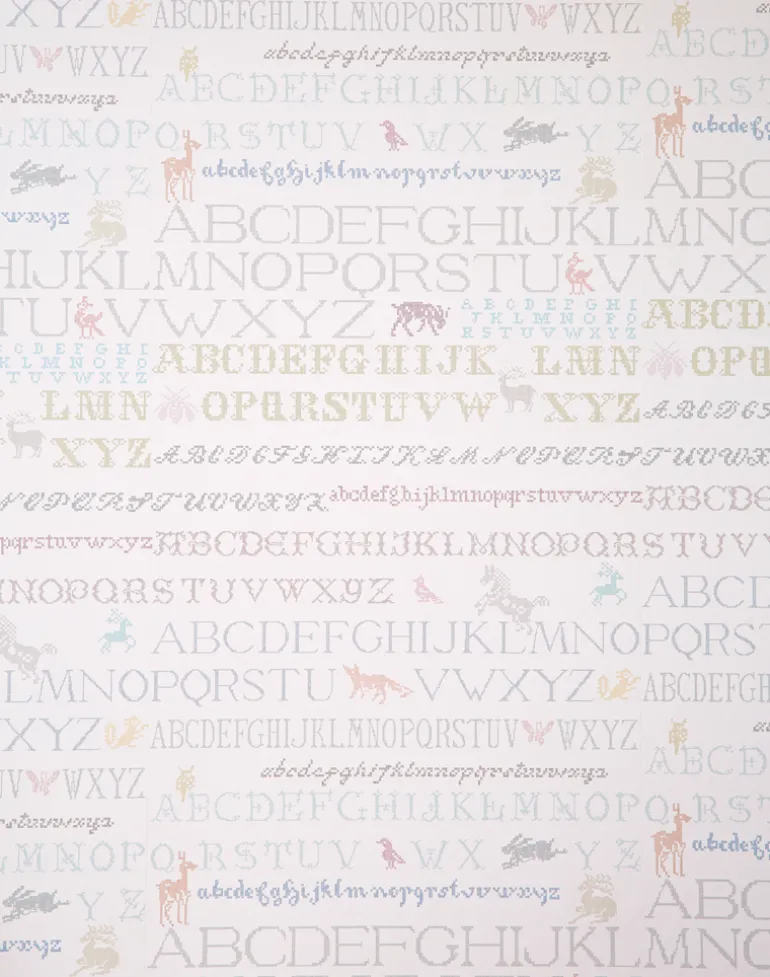 XYZ ABCDEFGHIJKLMNOPQRSTUVWXYZ
UV WXYZ abcdefghijklmnopqrstuvwxyz ABCD
rstuvwxyz ABCDEFGHIJKLMNOPQRST
LMNOPQRSTUV WX YZ abcdefg
YZ abcdefghijklmnopqrstuvwxyz ABC
wxyz ABCDEFGHIJKLMNO
HIJKLMNOPQRSTUVWX
TUVWXYZ ABCDEFGHI ABCD
JKLMNOPQ
RSTUVWXYZ
BCDEFGHI ABCDEFGHIJK LMN OPQ
KLMNOPQ
STUVWXYZ
LMN OPQRSTUVW XYZ ABCDEFG
XYZ ABCDEFGHIJKLMNOPQRSTUVWX
NOPQRSTUVWXYZ abcdefghijklmnopqrstuvwxyz ABCDE
pqrstuvwxyz ABCDEFGHIJKLMNOPQRSTUVW
MNOPQRSTUVWXYZ ABCD
ABCDEFGHIJKLMNOPQRST
LMNOPQRSTU VWXYZ ABCDEFGH
XYZ ABCDEFGHIJKLMNOPQRSTUV WXYZ
UV WXYZ abcdefghijklmnopqrstuvwxyz ABCD
rstuvwxyz ABCDEFGHIJKLMNOPQRST
LMNOPQRSTUV WX YZ abcdefg
YZ abcdefghijklmnopqrstuvwxyz ABC
wxyz ABCDEFGHIJKLMNO